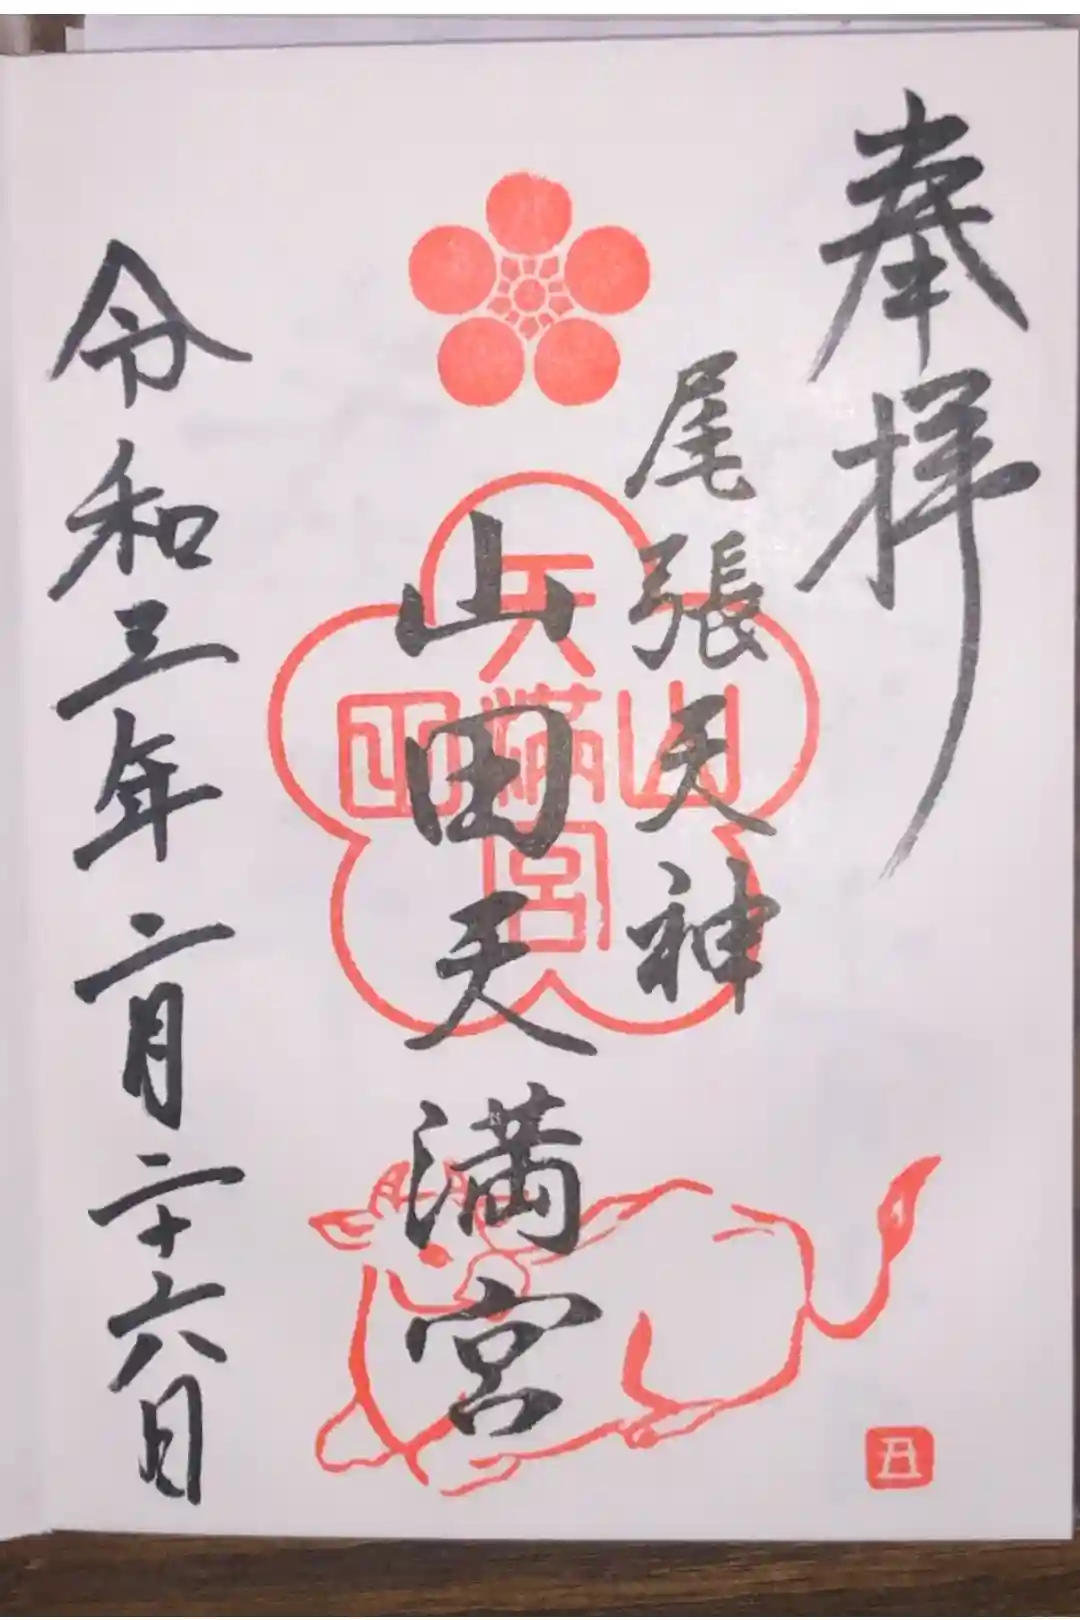 奉拝
尾張天神
山田天満宮
山田天満宮
令和三年二月二十六日
丑